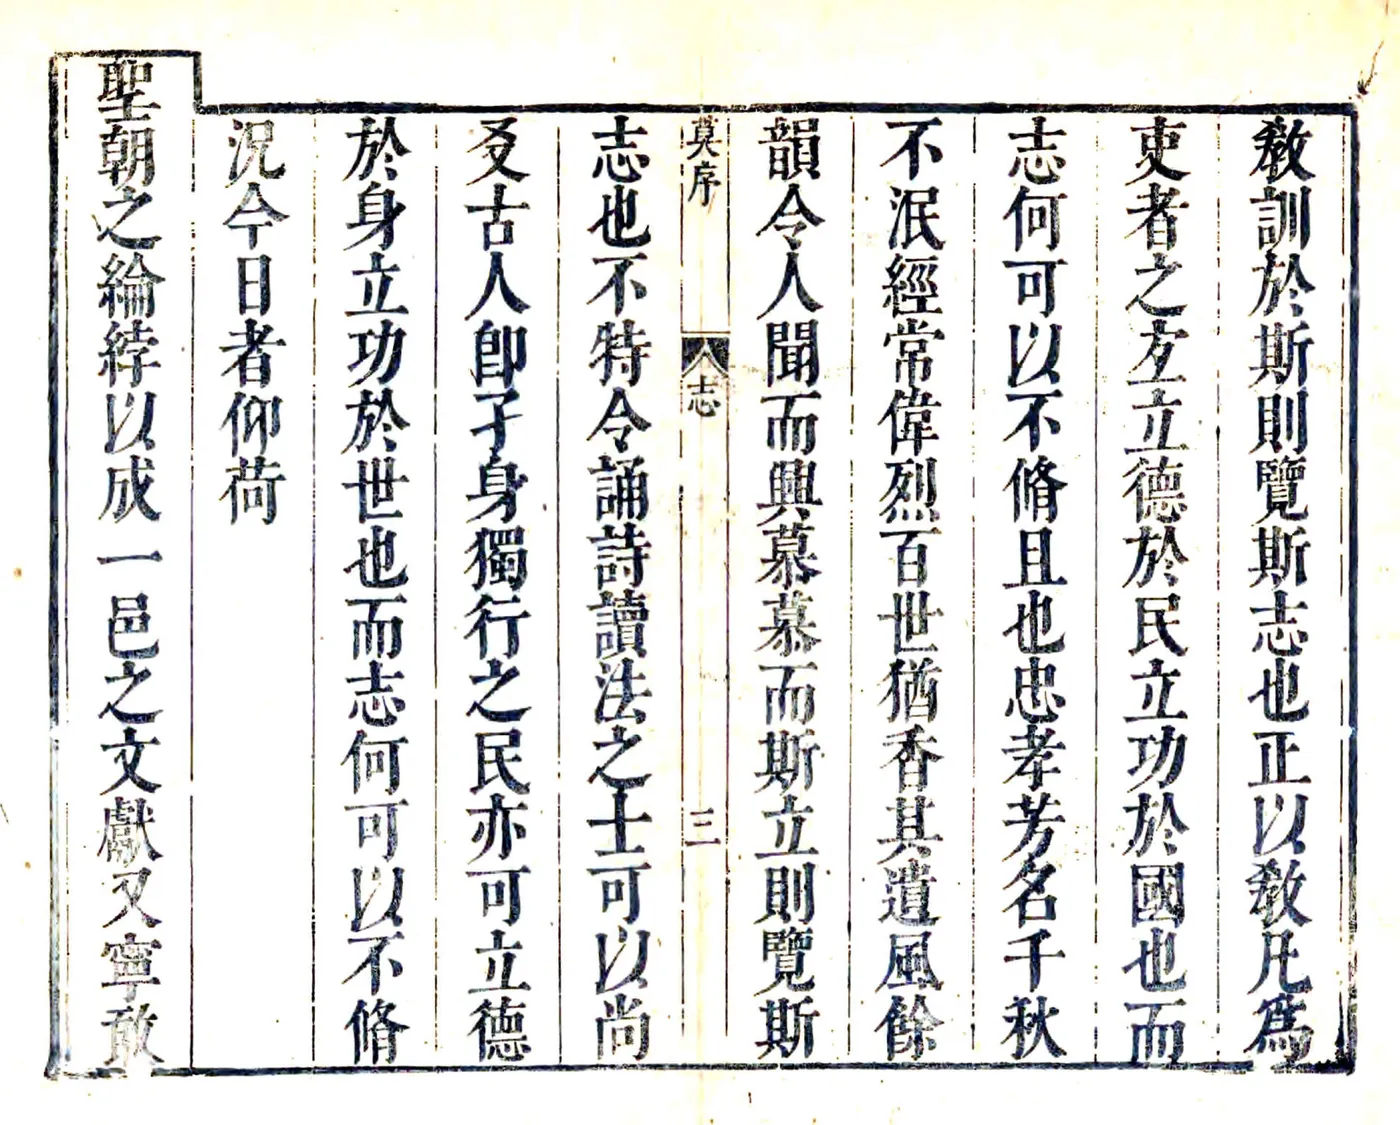 敎訓於斯則覽斯志也正以敎凡爲
吏者之㞢立德於民立功於國也而
志何可以不脩且也忠孝芳名千秋
不泯經常偉烈百世猶香其遺風餘
韻令人聞而興慕慕而斯立則覽斯
莫序
志
三
志也不特令誦詩讀法之士可以尚
友古人卽孑身獨行之民亦可立德
於身立功於世也而志何可以不脩
況今日者仰荷
聖朝之綸綍以成一邑之文獻又寧敢